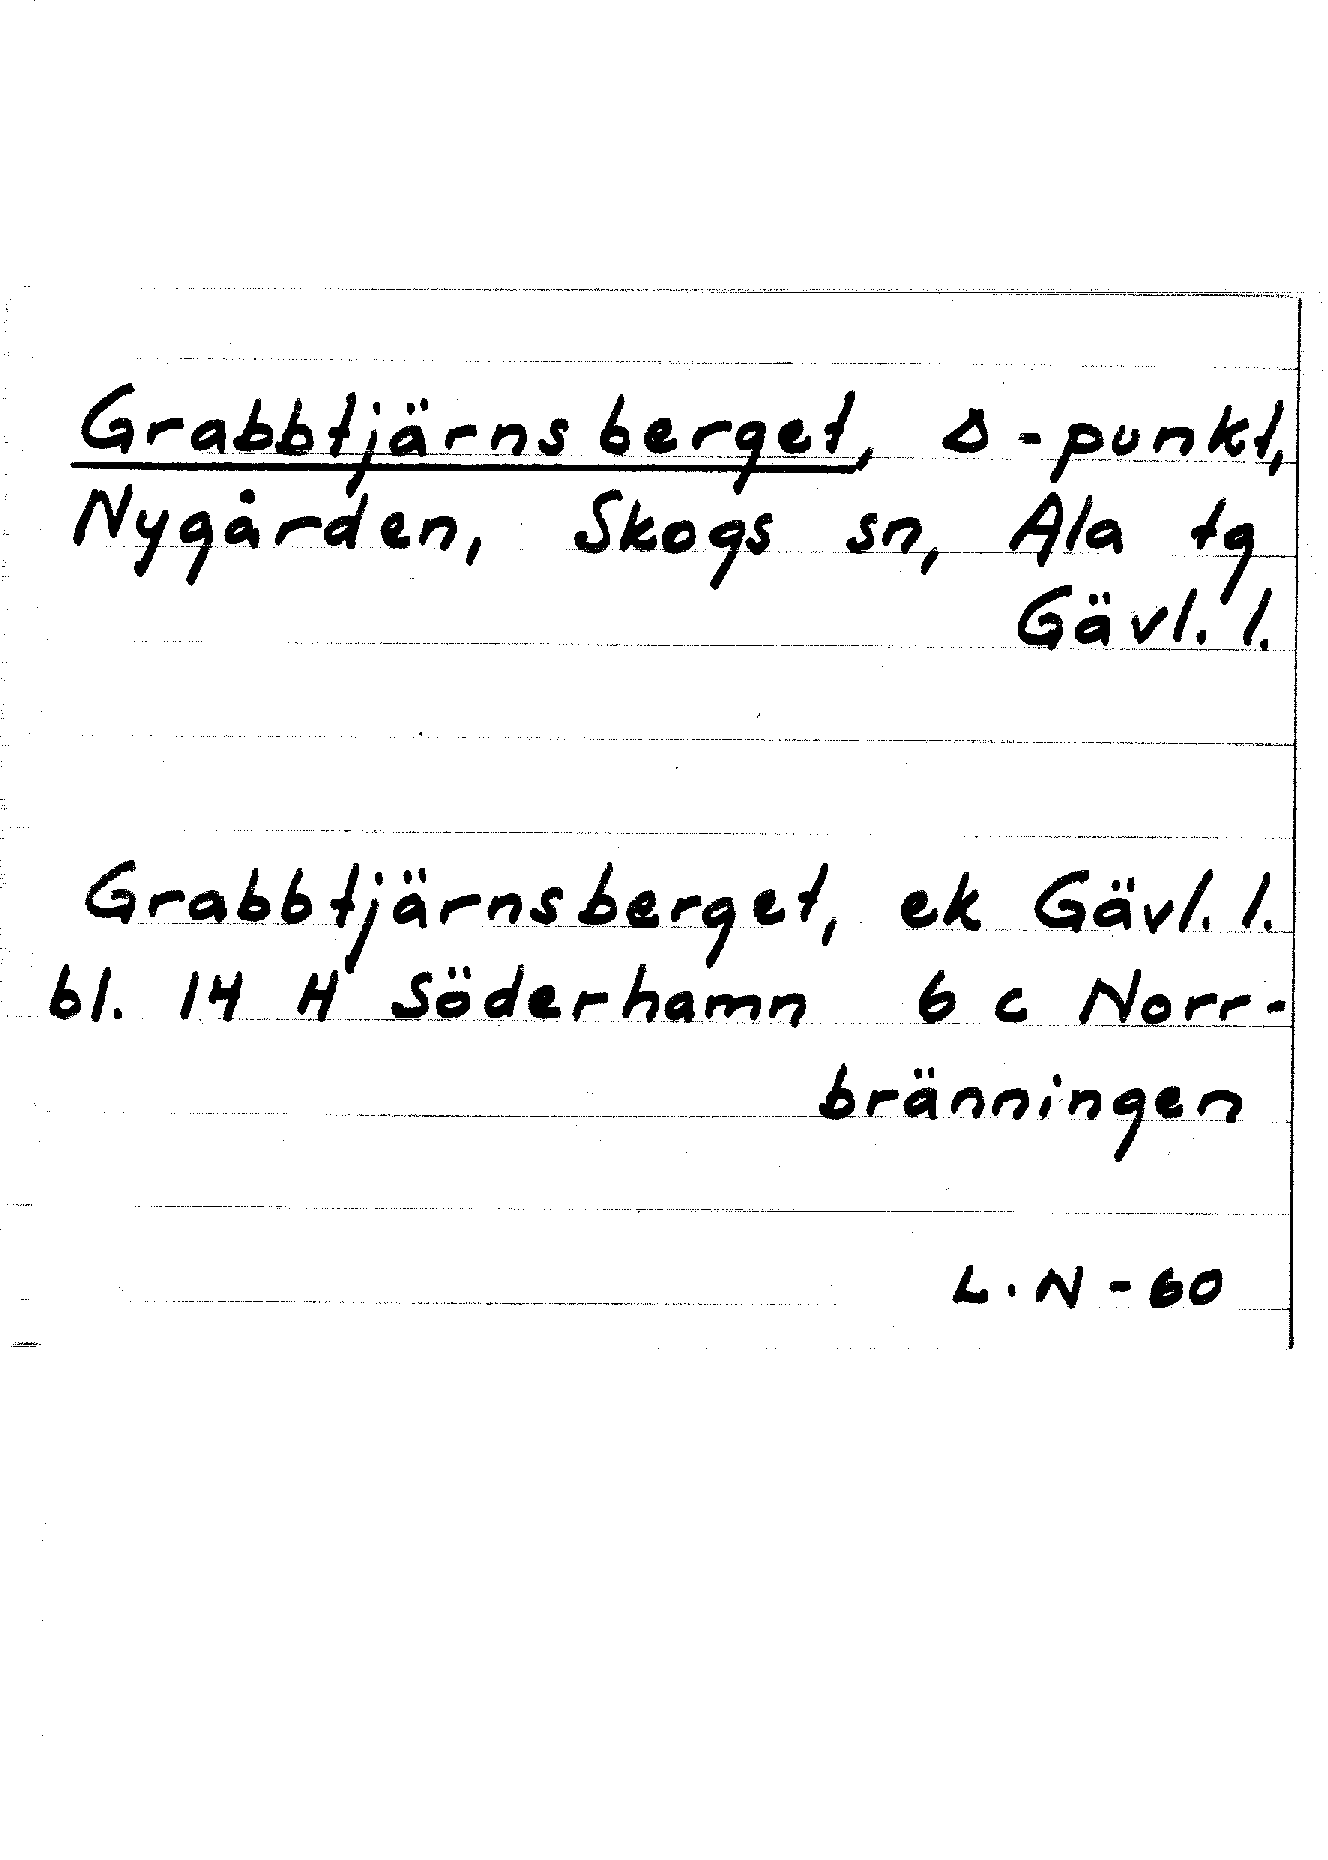 Grabbtjärnsberget, Δ-punkt,
Nygården, Skogs sn, Ala tg
Gävl. l.
Grabbtjärnsberget, ek Gävl. l.
bl. 14 H Söderhamn 6 c Norr-
bränningen
L.N-60